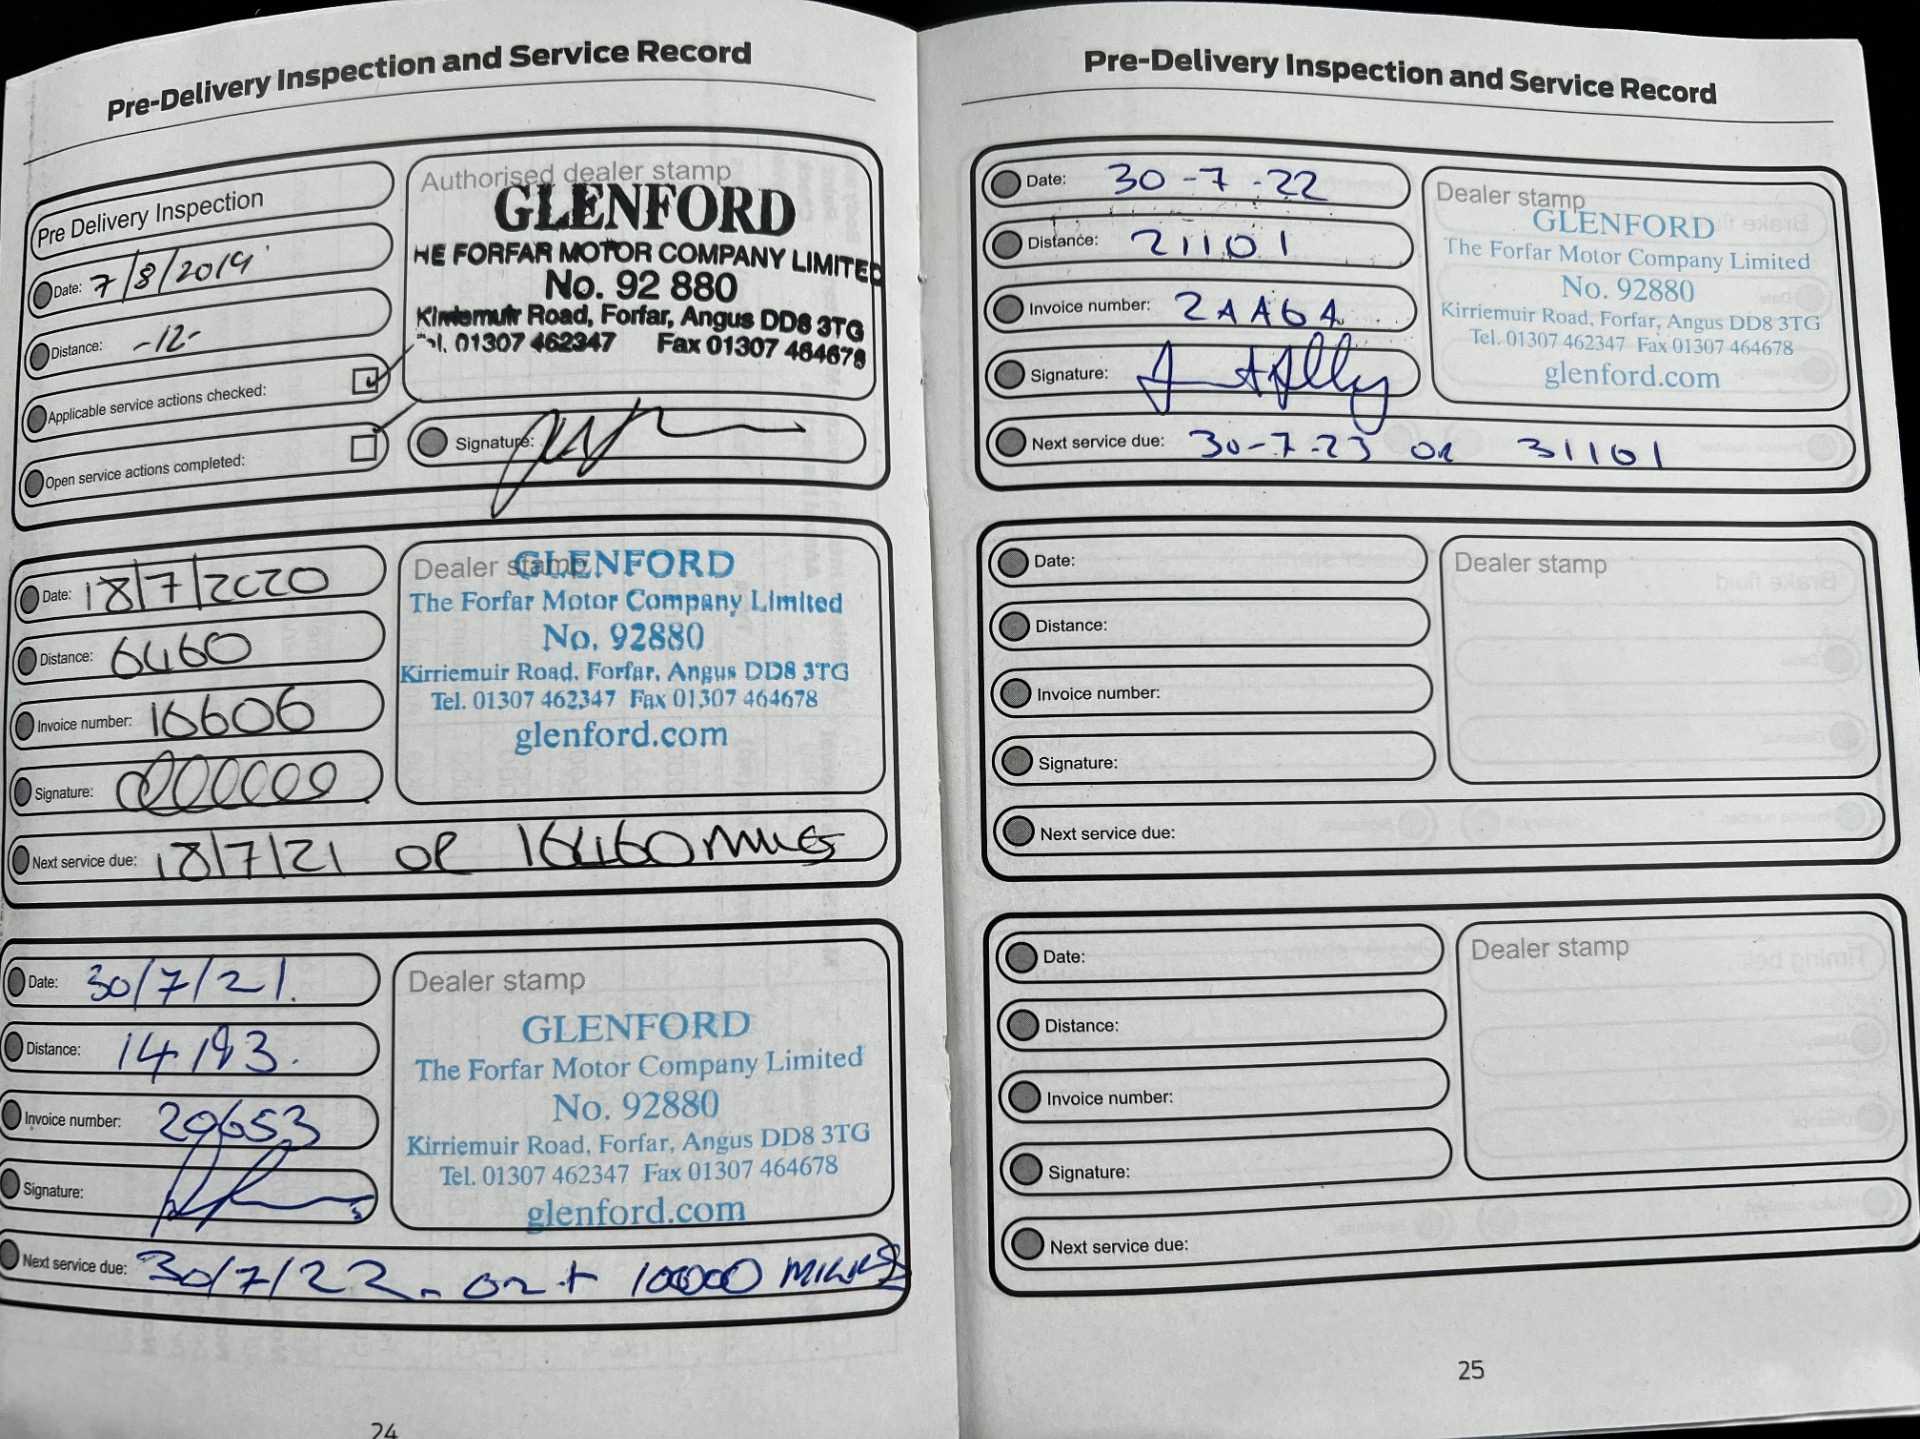 Pre-Delivery Inspection and Service Record
Pre Delivery Inspection
Date: 7/8/2019
Distance: -12-
Applicable service actions checked:
Open service actions completed:
Authorised dealer stamp
GLENFORD
HE FORFAR MOTOR COMPANY LIMITED
No. 92 880
Kirriemuir Road, Forfar, Angus DD8 3TG
Tel. 01307 462347 Fax 01307 464678
Signature:
Date: 18/7/2020
Distance: 6460
Invoice number: 16606
Signature:
Next service due: 18/7/21 OR 16460 miles
Dealer stamp
GLENFORD
The Forfar Motor Company Limited
No. 92880
Kirriemuir Road, Forfar, Angus DD8 3TG
Tel. 01307 462347 Fax 01307 464678
glenford.com
Date: 30/7/21.
Distance: 14193.
Invoice number: 20653
Signature:
Next service due: 30/7/22 - or + 10000 MILES
Dealer stamp
GLENFORD
The Forfar Motor Company Limited
No. 92880
Kirriemuir Road, Forfar, Angus DD8 3TG
Tel. 01307 462347 Fax 01307 464678
glenford.com
24
Pre-Delivery Inspection and Service Record
Date: 30-7-22
Distance: 21101
Invoice number:
Signature:
Next service due: 30-7-23 OR 31101
Dealer stamp
GLENFORD
The Forfar Motor Company Limited
No. 92880
Kirriemuir Road, Forfar, Angus DD8 3TG
Tel. 01307 462347 Fax 01307 464678
glenford.com
Date:
Distance:
Invoice number:
Signature:
Next service due:
Dealer stamp
Date:
Distance:
Invoice number:
Signature:
Next service due:
Dealer stamp
25